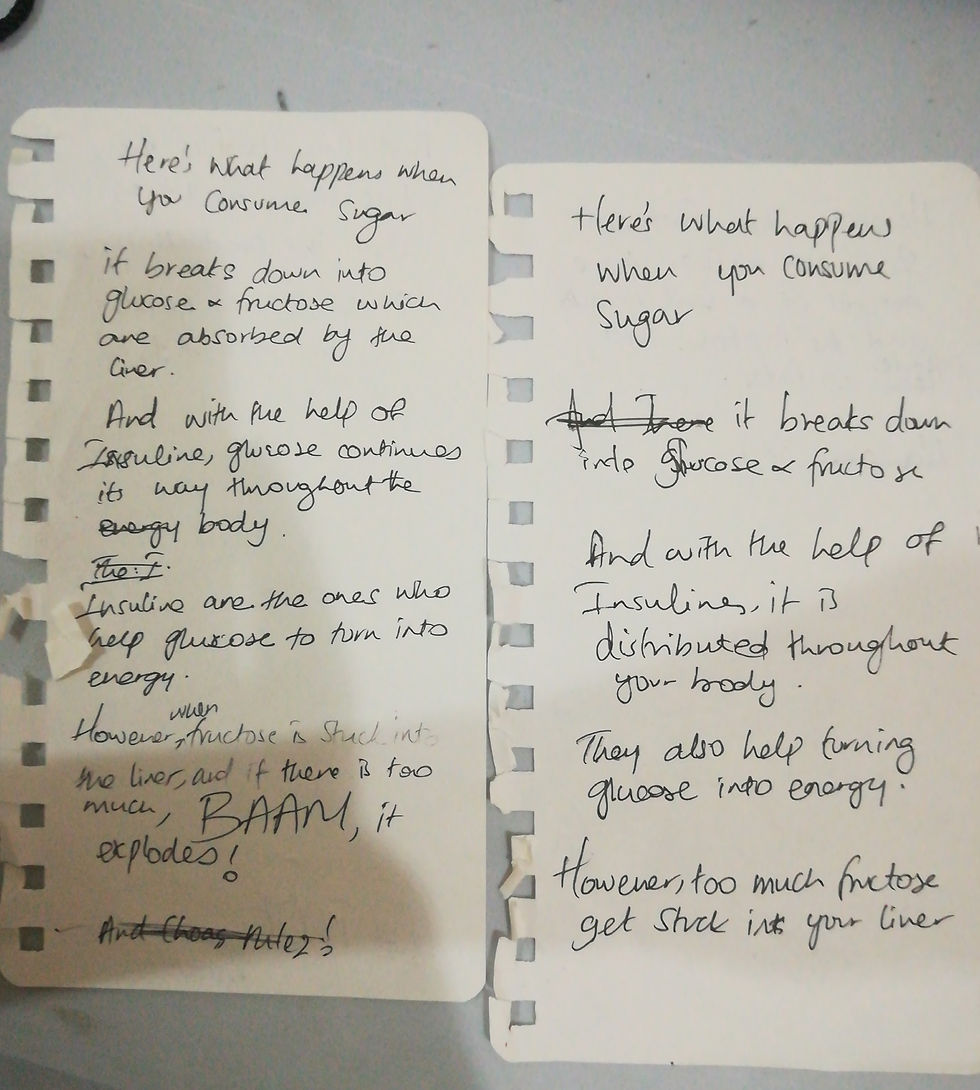 Here's what happens when
you consume sugar
it breaks down into
glucose & fructose which
are absorbed by the
liver.
And with the help of
Insuline, glucose continues
its way throughout the
energy body.
The I
Insuline are the ones who
help glucose to turn into
energy.
when
However, fructose is stuck into
the liver, and if there is too
much, BAAM, it
explodes!
And Choas rulez!
Here's what happens
when you consume
Sugar
And it breaks down
into glucose & fructose
And with the help of
Insulines, it is
distributed throughout
your body.
They also help turning
glucose into energy.
However, too much fructose
get stuck into your liver